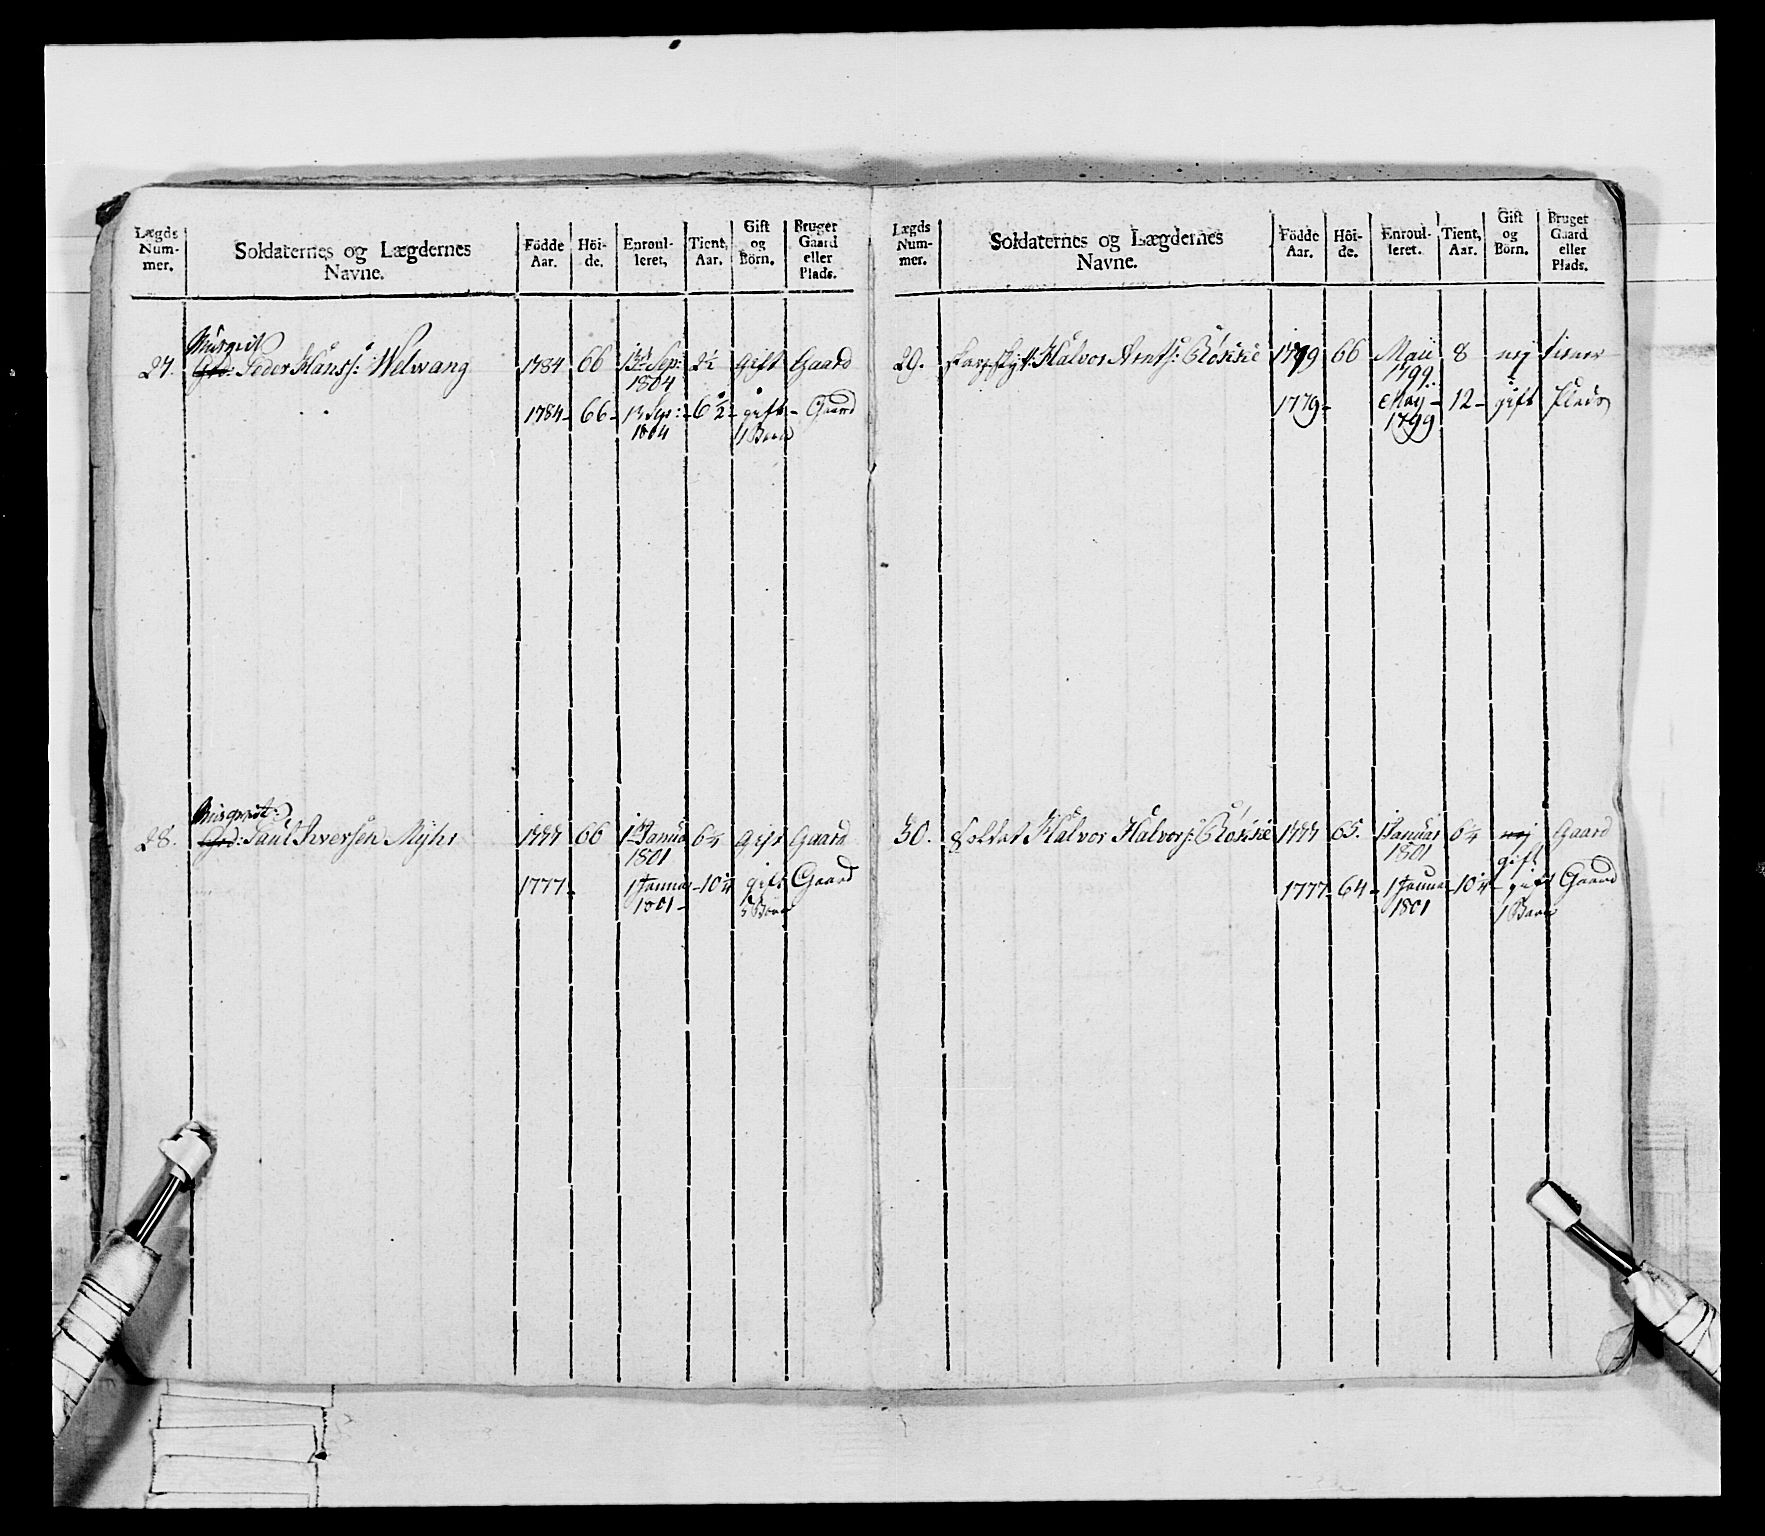 Lægds Num-mer.	Soldaternes og Lægdernes Navne.	Födde Aar.	Höi-de.	Enroul-leret,	Tient, Aar.	Gift og Börn.	Bruger Gaard eller Plads.
Musquet
27. Gfr: Peder Hanss: Welwang 1784 66 13de Sep: 1804 2½ gift Gaard
1784 - 66 - 13 Sep: 1804 - 6½ - gift 1 Barn - Gaard
Musquet:
28. Gfr: Paul Iversen Myhr 1777 66 1 Januar 1801 6¼ gift Gaard
1777 - 1 Januar 1801 - 10¼ gift 5 Børn Gaard
Lægds Num-mer.	Soldaternes og Lægdernes Navne.	Födde Aar.	Höi-de.	Enroul-leret.	Tient, Aar.	Gift og Börn.	Bruget Gaard eller Plads.
29. Halvor Arnts: 1799 66 Maii 1799. 8 nej tiener
1779 - May 1799 - 12 - gift Plads
30. Soldat Halvor Halvors: 1777 65. 1 Januar 1801 6¼ nej gift Gaard
1777 - 64 - 1 Januar 1801 - 10¼ - gift 1 Barn Gaard